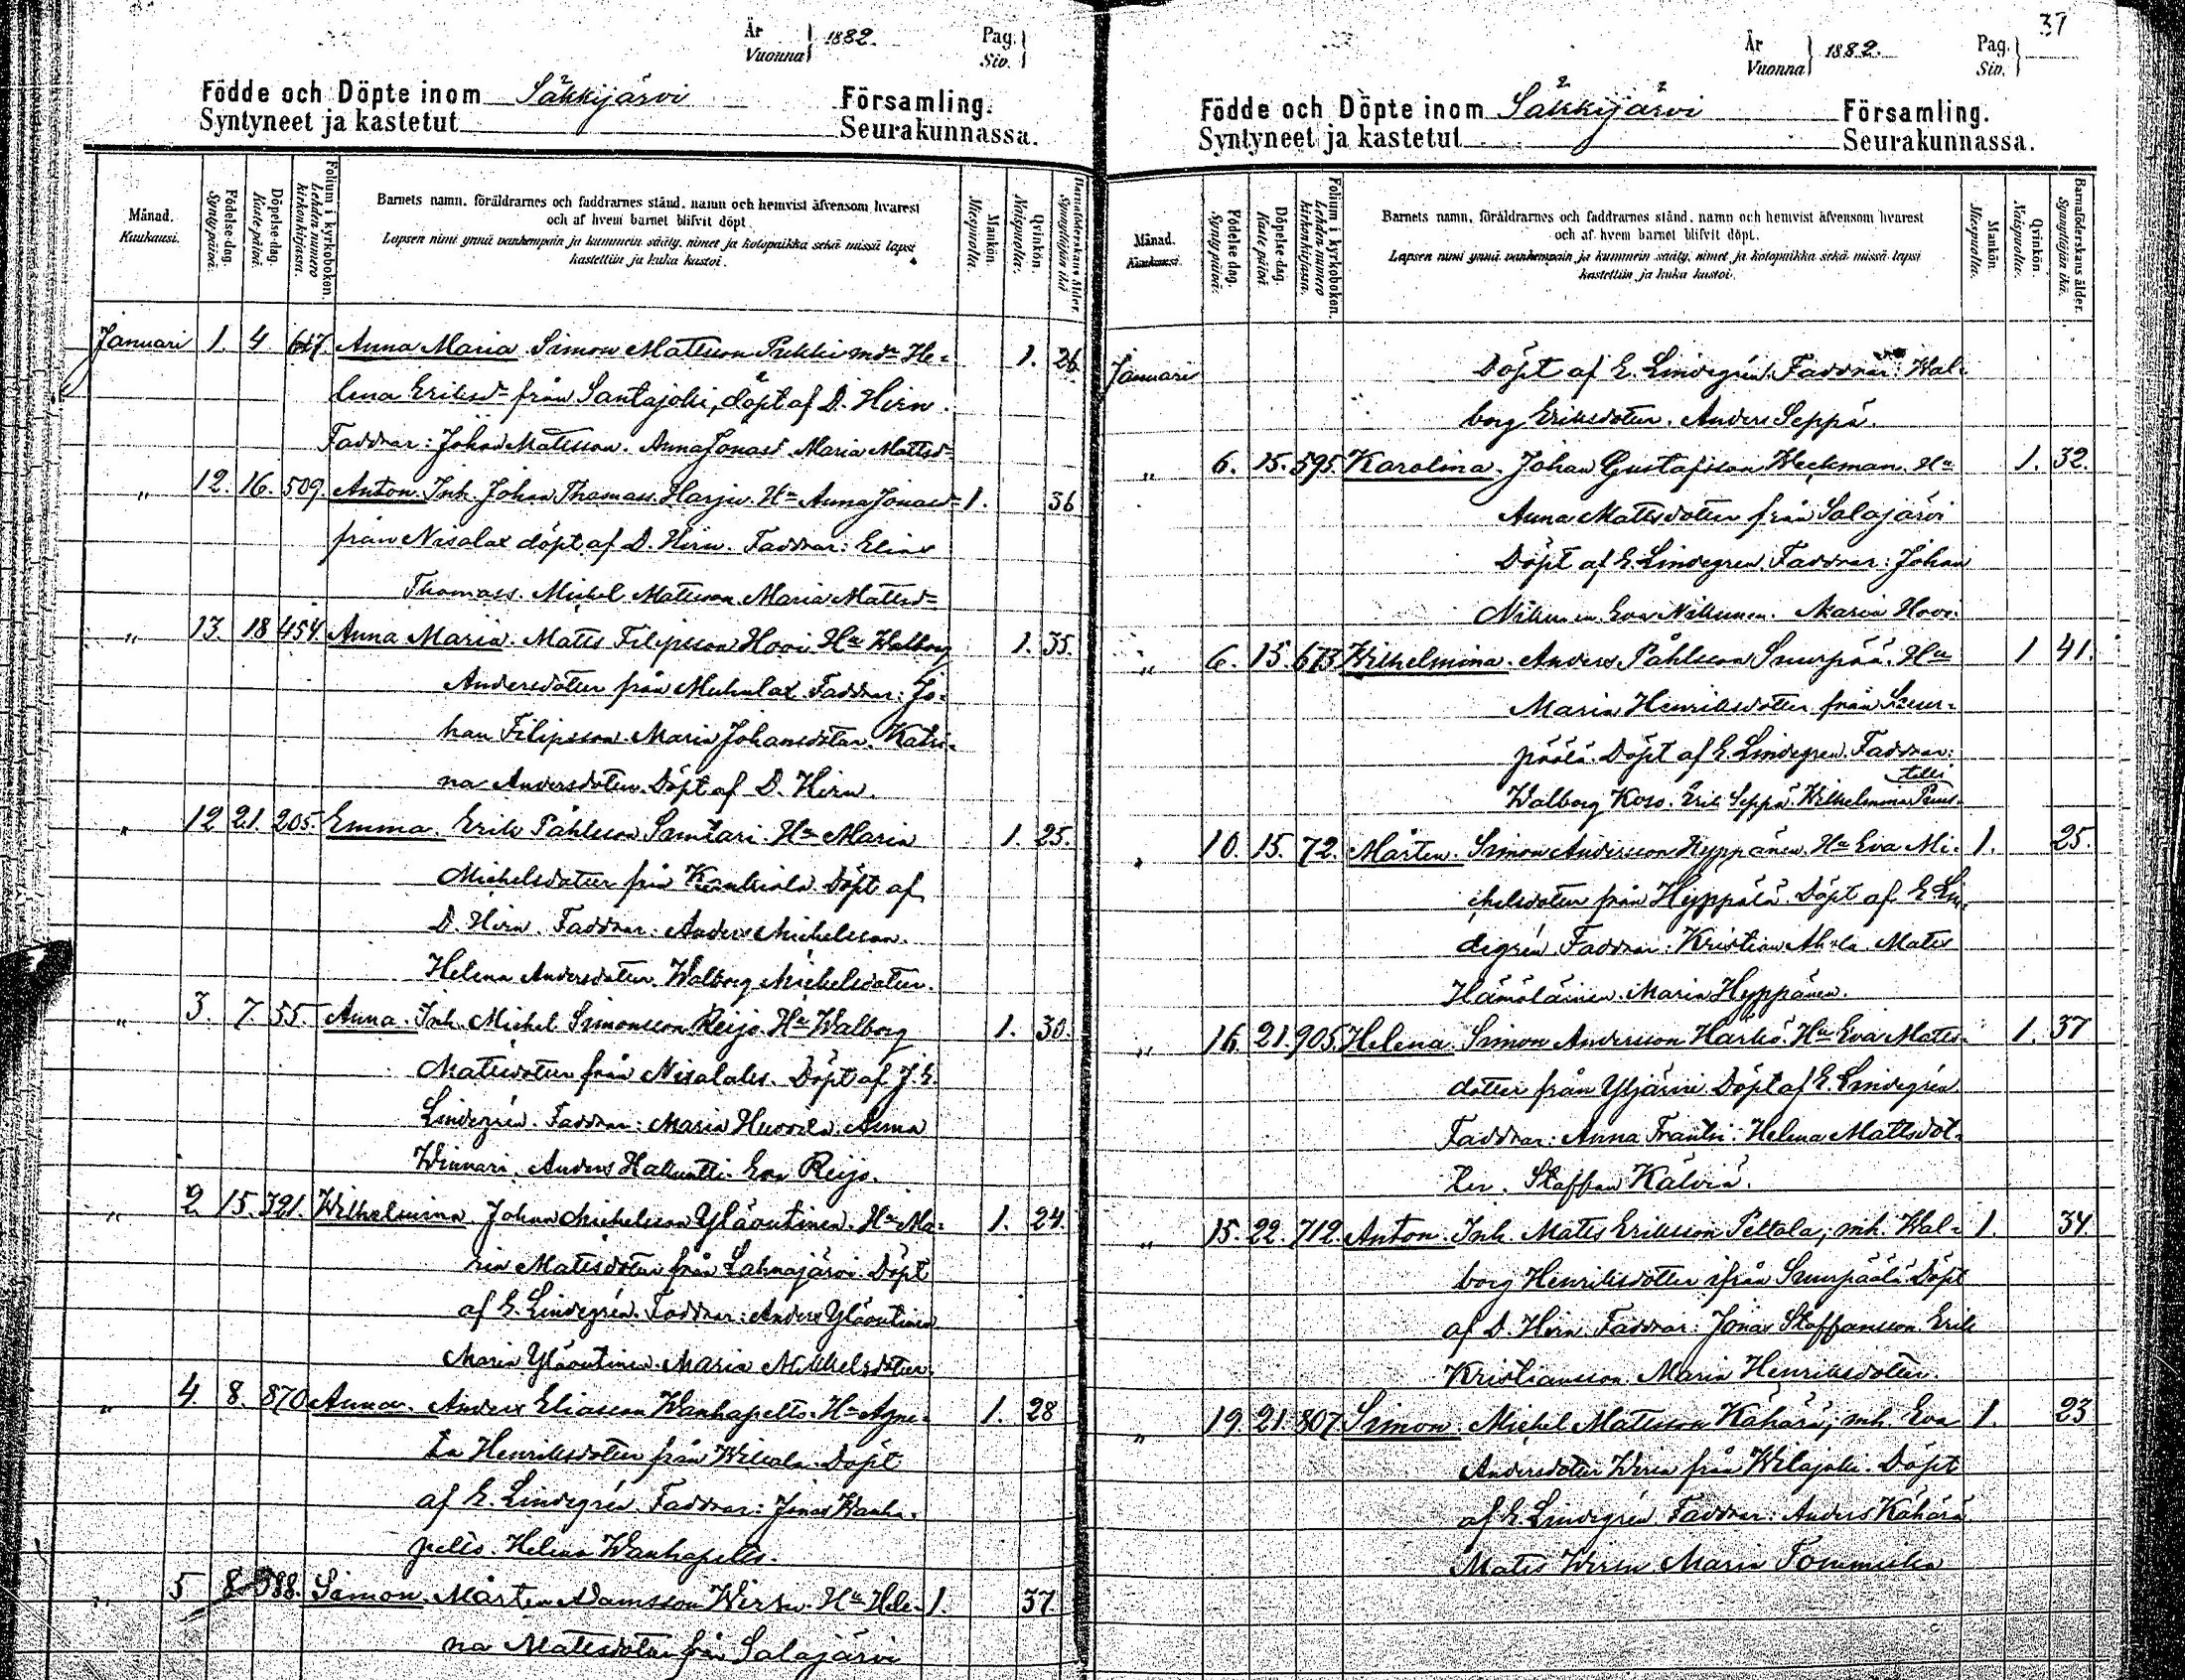 År 1882. Pag.
Vuonna Siv.
Födde och Döpte inom Säkkijärvi Församling.
Syntyneet ja kastetut Seurakunnassa.
Månad. Kuukausi.
Födelse-dag. Synty-päivä.
Döpelse-dag. Kaste-päivä.
Folium i kyrkoboken. Lehden numero kirkonkirjassa.
Barnets namn, föräldrarnes och faddrarnes stånd, namn och hemvist äfvensom hvarest
och af hvem barnet blifvit döpt.
Lapsen nimi ynnä vanhempain ja kummein sääty, nimet ja kotopaikka sekä missä lapsi
kastettiin ja kuka kastoi.
Mankön. Miespuolia.
Qvinkön. Naispuolia.
Barnaföderskans ålder. Synnyttäjän ikä.
Januari 1. 4. 617. Anna Maria Simon Mattsson Pukki mdr He- 1. 26
lena Eriksdr från Santajoki, döpt af D. Hirn.
Faddrar: Johan Mattsson. Anna Jonasd. Maria Mattsd.
" 12. 16. 509 Anton. Inh. Johan Thomass. Harju. Hu Anna Jonasd. 1. 36
från Nisalax döpt af D. Hirn. Faddrar: Elias
Thomass. Michel Mattsson Maria Mattsd.
" 13 18 454. Anna Maria. Matts Filipsson Hovi Hu Walborg 1. 35.
Andersdotter från Muhulax Faddrar: Jo-
han Filipsson. Maria Johansdotter. Katri-
na Andersdotter. Döpt af D. Hirn.
" 12 21. 205. Emma. Erik Påhlsson Suntari. Hu Maria 1. 25.
Michelsdotter från Kankiala Döpt af
D. Hirn. Faddrar: Anders Michelsson.
Helena Andersdotter. Walborg Michelsdotter.
" 3. 7. 55. Anna. Inh. Michel Simonsson Reijo. Hu Walborg 1. 30.
Mattsdotter från Nisalaks. Döpt af J. E.
Lindegrén. Faddrar: Maria Huovila. Anna
Winnari. Anders Halluntti. Eva Reijo.
" 2 15. 321. Wilhelmina. Johan Michelsson Yläoutinen. Hu Ma- 1. 24.
ria Mattsdotter från Lahnajärvi. Döpt
af E. Lindegrén. Faddrar: Anders Yläoutinen
Maria Yläoutinen. Maria Mikkelsdotter.
" 4. 8. 870 Anna. Anders Eliasson Wanhapelto. Hu Agne- 1. 28
ta Henriksdotter från Wilkala. Döpt
af E. Lindegrén. Faddrar: Jonas Wanha-
pelto. Helena Wanhapelto.
" 5 8 588. Simon. Mårten Adamsson Wirsu. Hu Hele- 1. 37.
na Mattsdotter från Salajärvi
37
År 1882. Pag.
Vuonna Siv.
Födde och Döpte inom Säkkijärvi Församling.
Syntyneet ja kastetut Seurakunnassa.
Månad. Kuukausi.
Födelse dag. Synty päivä.
Döpelse dag. Kaste päivä
Folium i kyrkoboken. Lehden numero kirkonkirjassa.
Barnets namn, föräldrarnes och faddrarnes stånd, namn och hemvist äfvensom hvarest
och af hvem barnet blifvit döpt.
Lapsen nimi ynnä vanhempain ja kummein sääty, nimet ja kotopaikka sekä missä lapsi
kastettiin ja kuka kastoi.
Mankön. Miespuolia.
Qvinkön. Naispuolia.
Barnaföderskans ålder. Synnyttäjän ikä.
Januari Döpt af E. Lindegrén. Faddrar: Wal-
borg Eriksdotter. Anders Seppä.
" 6. 15. 595. Karolina. Johan Gustafsson Weckman. Hu 1. 32.
Anna Mattsdotter från Salajärvi
Döpt af E. Lindegren. Faddrar: Johan
Nikunen Eva Nikunen. Maria Hovi.
" 6. 15. 673 Wilhelmina. Anders Påhlsson Suurpää. Hu 1 41.
Maria Henriksdotter från Suur-
päälä. Döpt af E. Lindegren. Faddrar:
Walborg Koso. Erik Seppä. Wilhelmina
" 10. 15. 72. Mårten. Simon Andersson Hyppänen. Hu Eva Mi- 1. 25.
chelsdotter från Hyppälä. Döpt af E. Lin-
degrén. Faddrar: Kristian Ahola. Matts
Hämäläinen. Maria Hyppänen.
" 16. 21. 905. Helena. Simon Andersson Harko. Hu Eva Matts- 1. 37
dotter från Yljärvi. Döpt af E. Lindegrén
Faddrar: Anna Frantsi. Helena Mattsdot-
ter. Staffan Kälviä.
" 15. 22. 712. Anton. Inh. Matts Eriksson Peltala; mh. Wal- 1. 34.
borg Henriksdotter ifrån Suurpäälä. Döpt
af D. Hirn. Faddrar: Jonas Staffansson. Erik
Kristiansson. Maria Henriksdotter.
" 19. 21. 807. Simon. Michel Mattsson Kähärä; mh. Eva 1. 23
Andersdotter Wirén från Wilajoki. Döpt
af E. Lindegrén. Faddrar: Anders Kähärä
Matts Wirén. Maria Tommiska